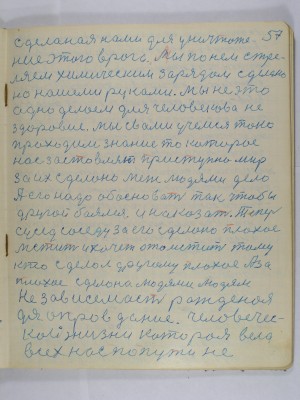 сделаная нами для уничтоже- 57
ние этого врага. Мы по нем стре-
ляем химическим зарядом сделано
но нашеми руками. Мы не это
одно делаем для человека не
здоровие. мы с вами учемся тоно
проходим знание то которое
нас заставляет приступно мир
за их сделано меж людями дело
Его надо обосновать так чтобы
другой боялся, и наказат. Тепер
сусед соседу за его сделано плохое
мстит и хочет отомстить тому
кто сделал другому плохое А за
плохое сделано людями людям
Независемасть рожденая
для оправдание. человечес-
кой жизни котороя вела
всех нас по пути не